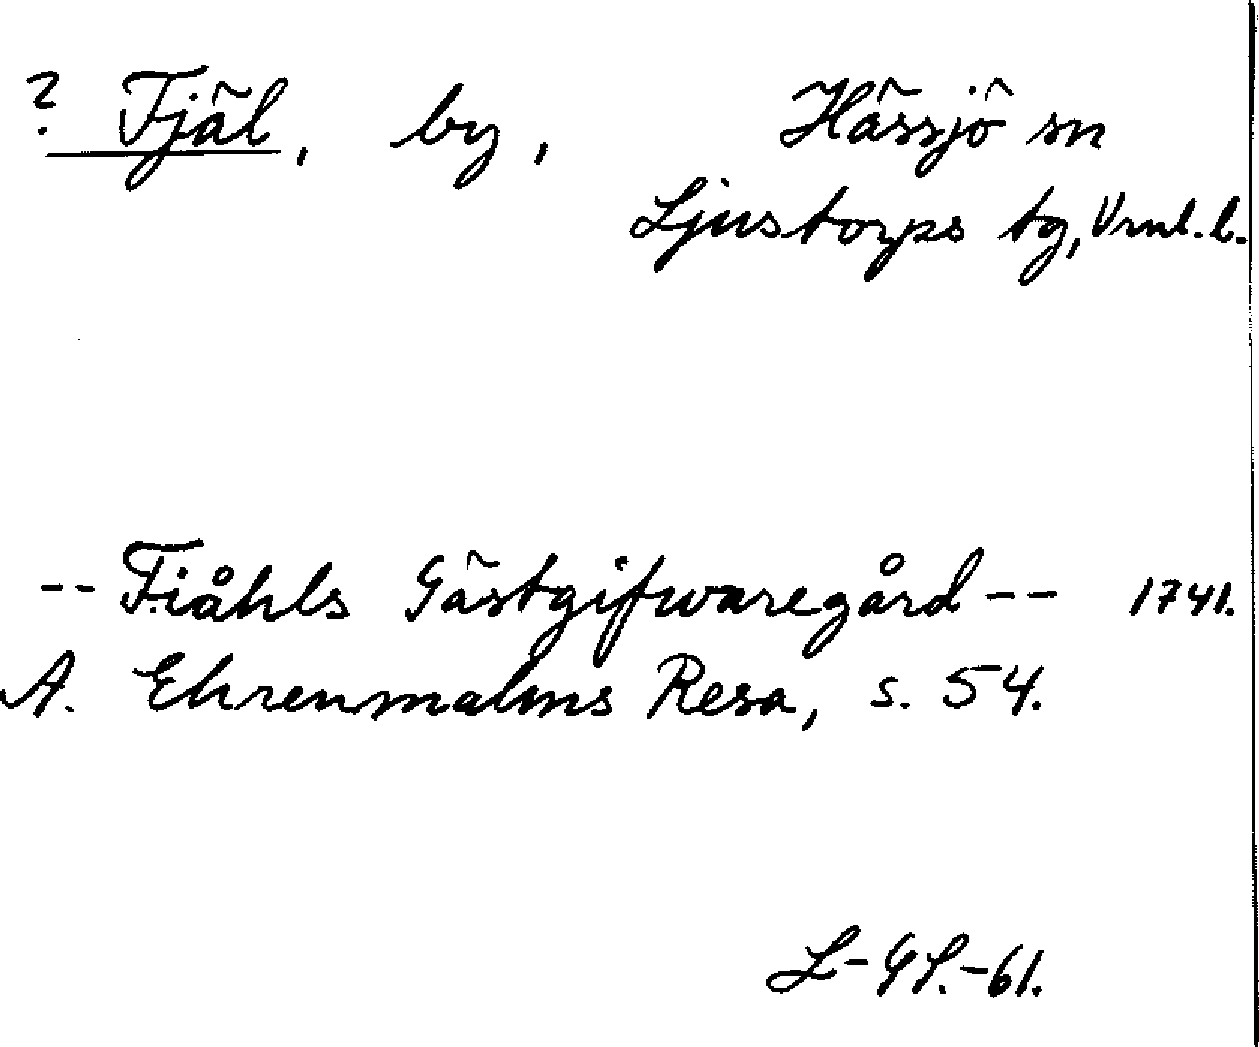 ? Fjäl, by, Hässjö sn
Ljustorps tg, Vrnl. l.
-- Fiåhls Gästgifwaregård -- 1741.
A. Ehrenmalms Resa, s. 54.
L-GS.-61.